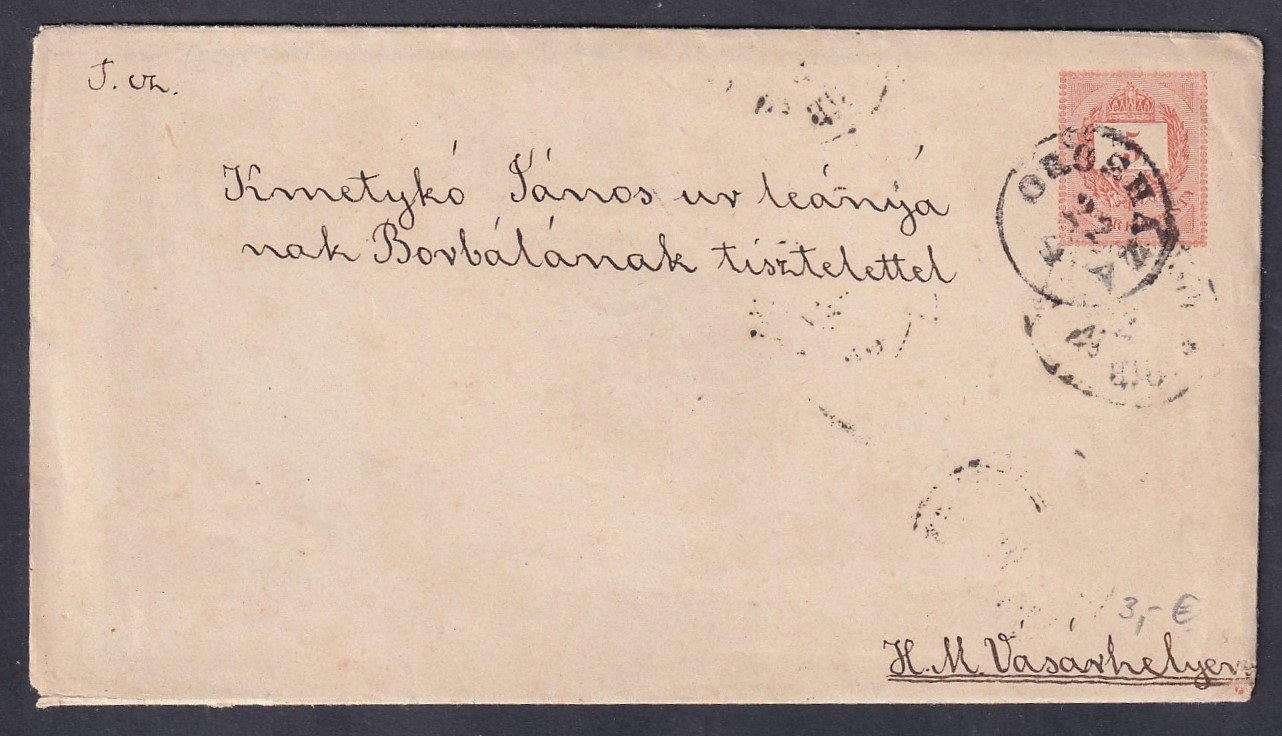 T. cz.
Kmetykó János ur leánya
nak Borbálának tisztelettel
OROSHÁZA
5
3,- €
H. M. Vásárhelyen